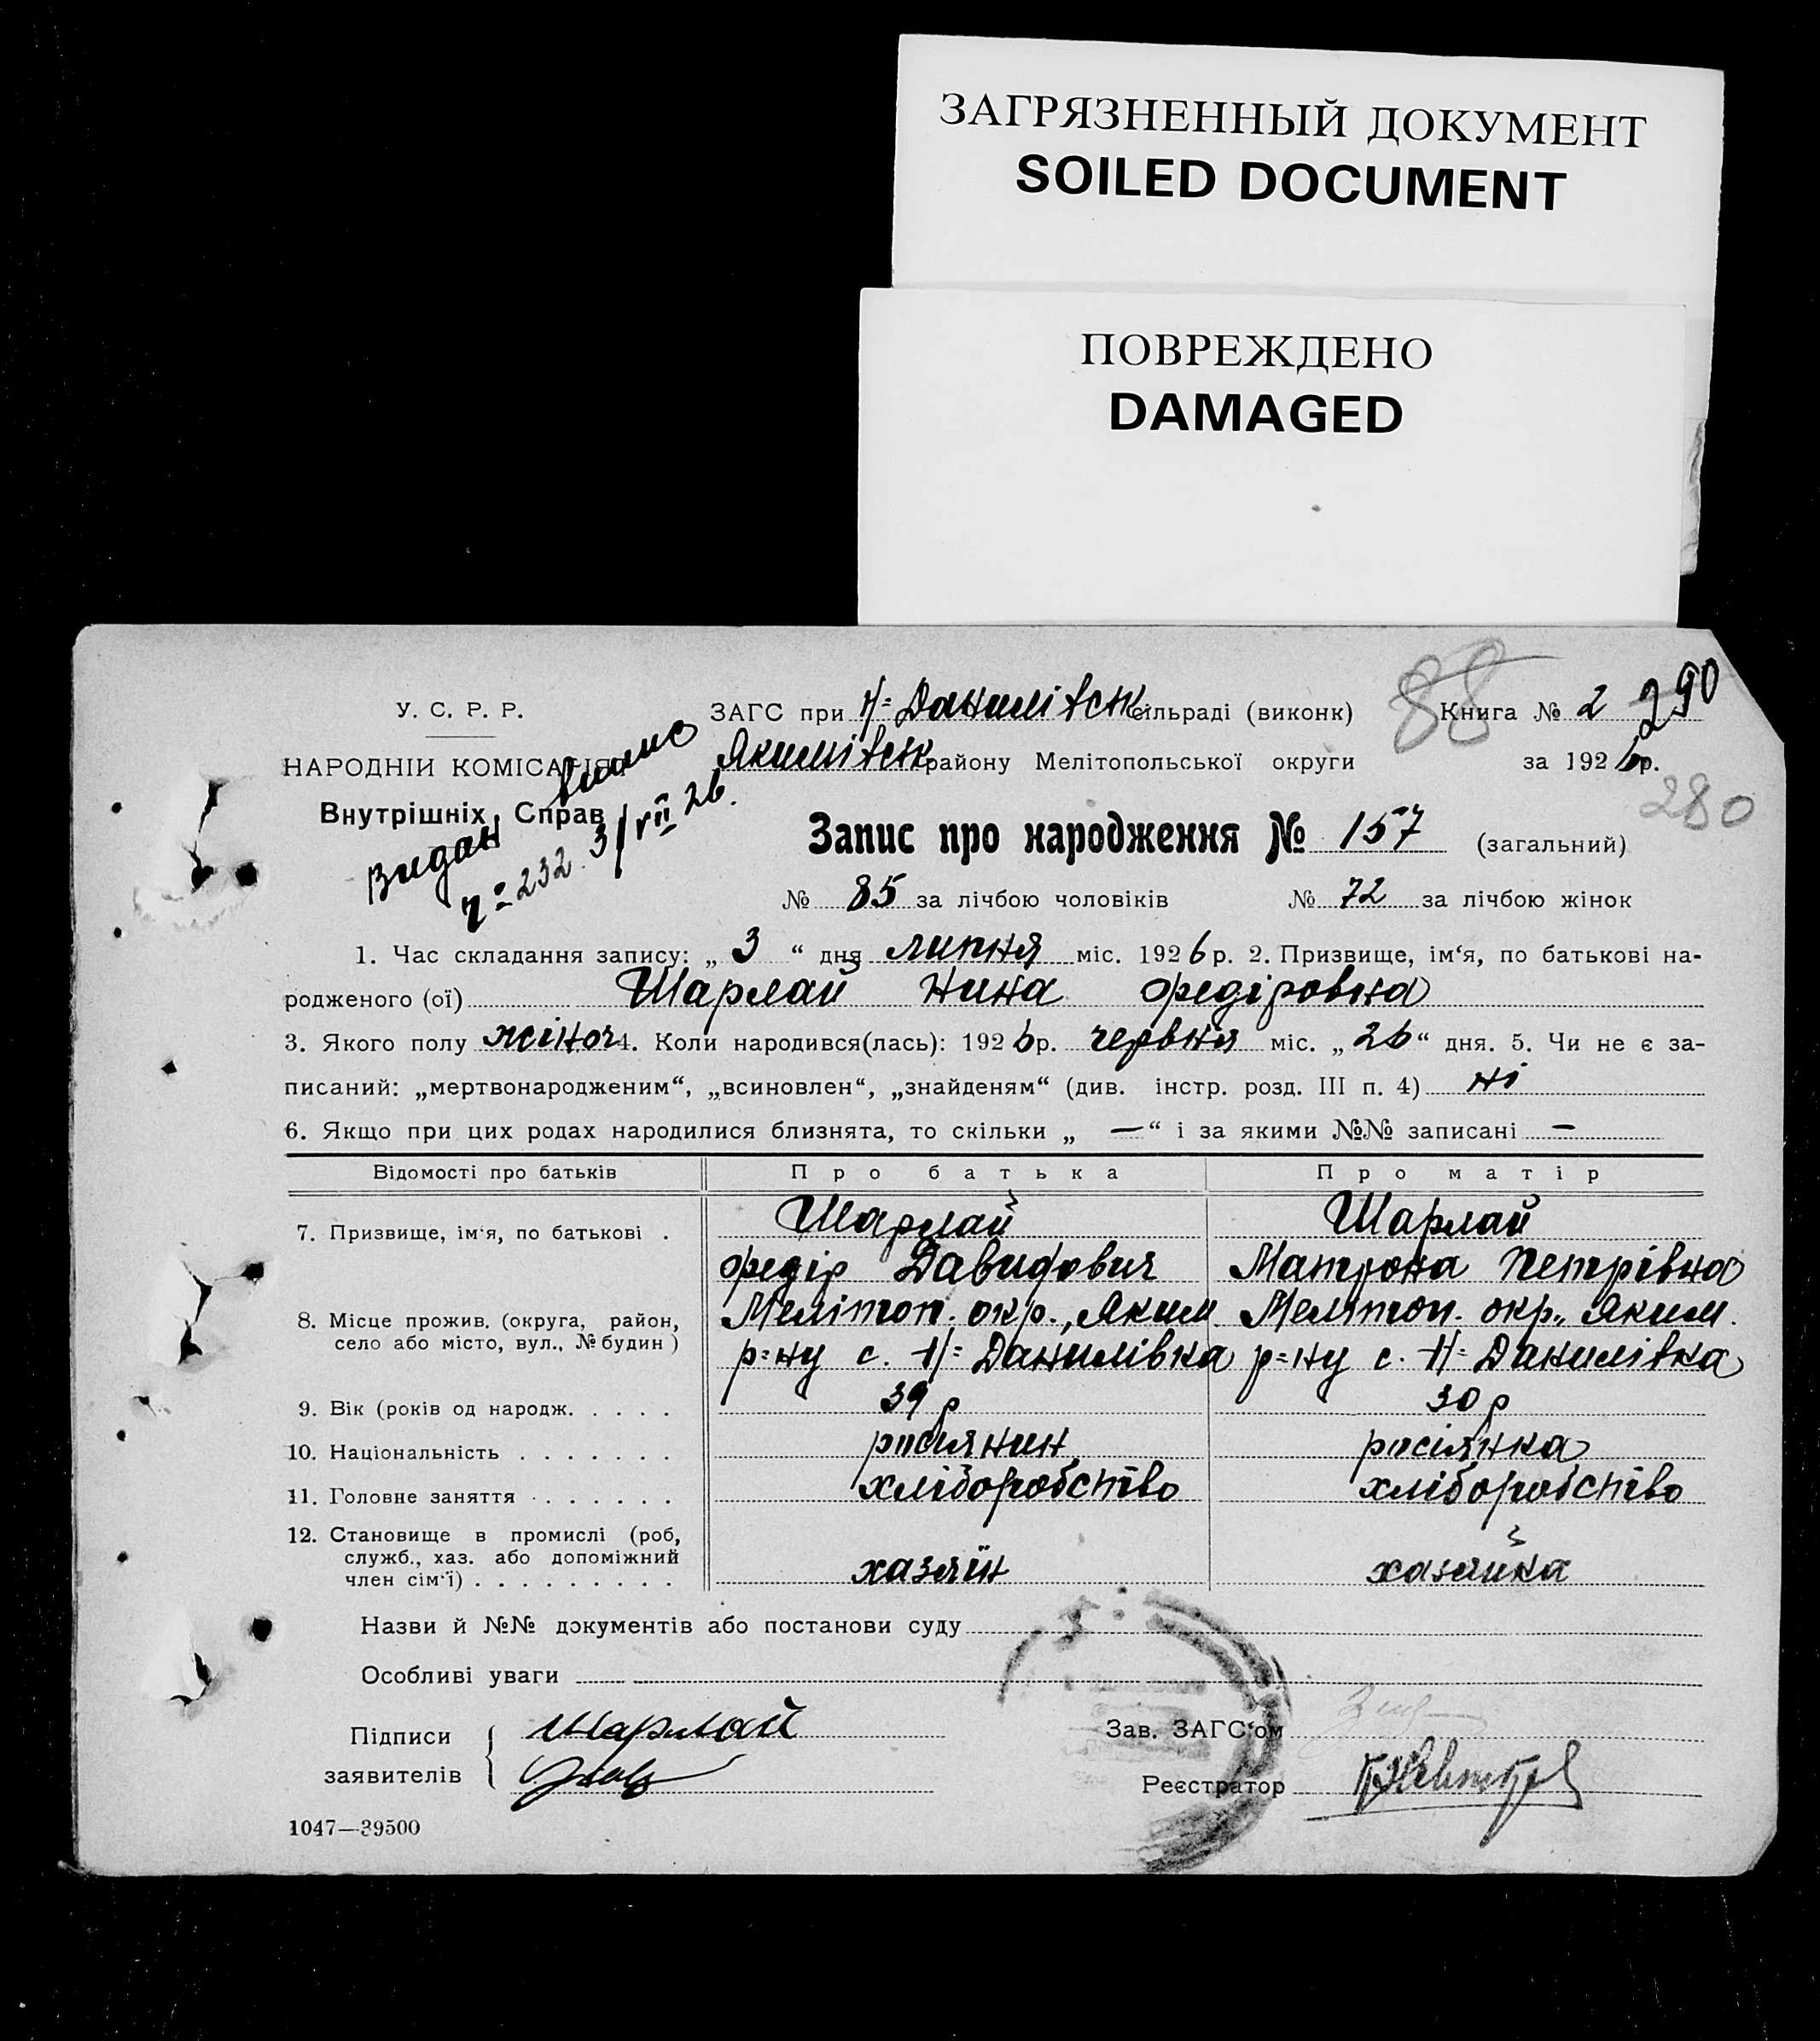 ЗАГРЯЗНЕННЫЙ ДОКУМЕНТ
SOILED DOCUMENT
ПОВРЕЖДЕНО
DAMAGED
88
290
280
У. С. Р. Р.
НАРОДНІЙ КОМІСАРІЯТ
Внутрішніх Справ
Видан
№ 232 3/VII 26.
ЗАГС при Н=Данилівськ сільраді (виконк) Книга № 2
Якимівськ району Мелітопольської округи за 1926 р.
Запис про народження № 157 (загальний)
№ 85 за лічбою чоловіків № 72 за лічбою жінок
1. Час складання запису: „ 3 “ дня липня міс. 1926 р. 2. Призвище, ім‘я, по батькові на-
родженого (ої) Шарлай Нина Федіровна
3. Якого полу жіноч 4. Коли народився(лась): 1926 р. червня міс. „ 26 “ дня. 5. Чи не є за-
писаний: „мертвонародженим“, „всиновлен“, „знайденям“ (див. інстр. розд. III п. 4) ні
6. Якщо при цих родах народилися близнята, то скільки „ — “ і за якими №№ записані —
Відомості про батьків Про батька Про матір
7. Призвище, ім‘я, по батькові . Шарлай Шарлай
Федір Давидович Матрона Петрівна
8. Місце прожив. (округа, район, Мелітоп. окр., Яким. Мелітоп. окр., Яким.
село або місто, вул., № будин ) р=ну с. Н=Данилівка р=ну с. Н=Данилівка
9. Вік (років од народж. . . . . 39 р 30 р
10. Національність . . . . . . . росіянин росіянка
11. Головне заняття . . . . . . . хліборобство хліборобство
12. Становище в промислі (роб,
служб., хаз. або допоміжний
член сім‘ї) . . . . . . . . . хазяїн хазяйка
Назви й №№ документів або постанови суду
Особливі уваги
Підписи Шарлай Зав. ЗАГС‘ом
заявителів Реєстратор
1047—39500